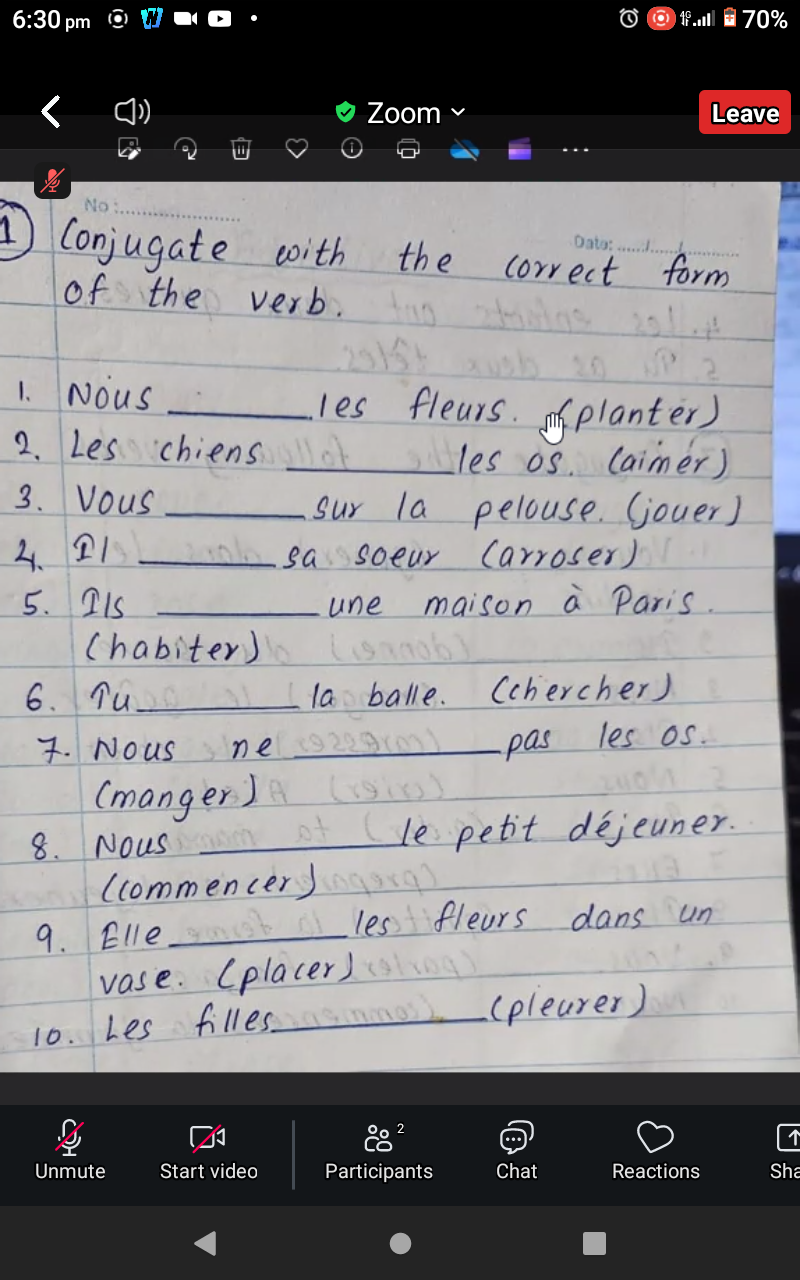 6:30 pm 4G 70%
Zoom Leave
No:
Date:
1 Conjugate with the correct form
of the verb.
1. Nous ________ les fleurs. (planter)
2. Les chiens ________ les os. (aimer)
3. Vous ________ sur la pelouse. (jouer)
4. Il ________ sa soeur (arroser)
5. Ils ________ une maison à Paris.
(habiter)
6. Tu ________ la balle. (chercher)
7. Nous ne ________ pas les os.
(manger)
8. Nous ________ le petit déjeuner.
(commencer)
9. Elle ________ les fleurs dans un
vase. (placer)
10. Les filles ________ (pleurer)
2
Unmute Start video Participants Chat Reactions Sha